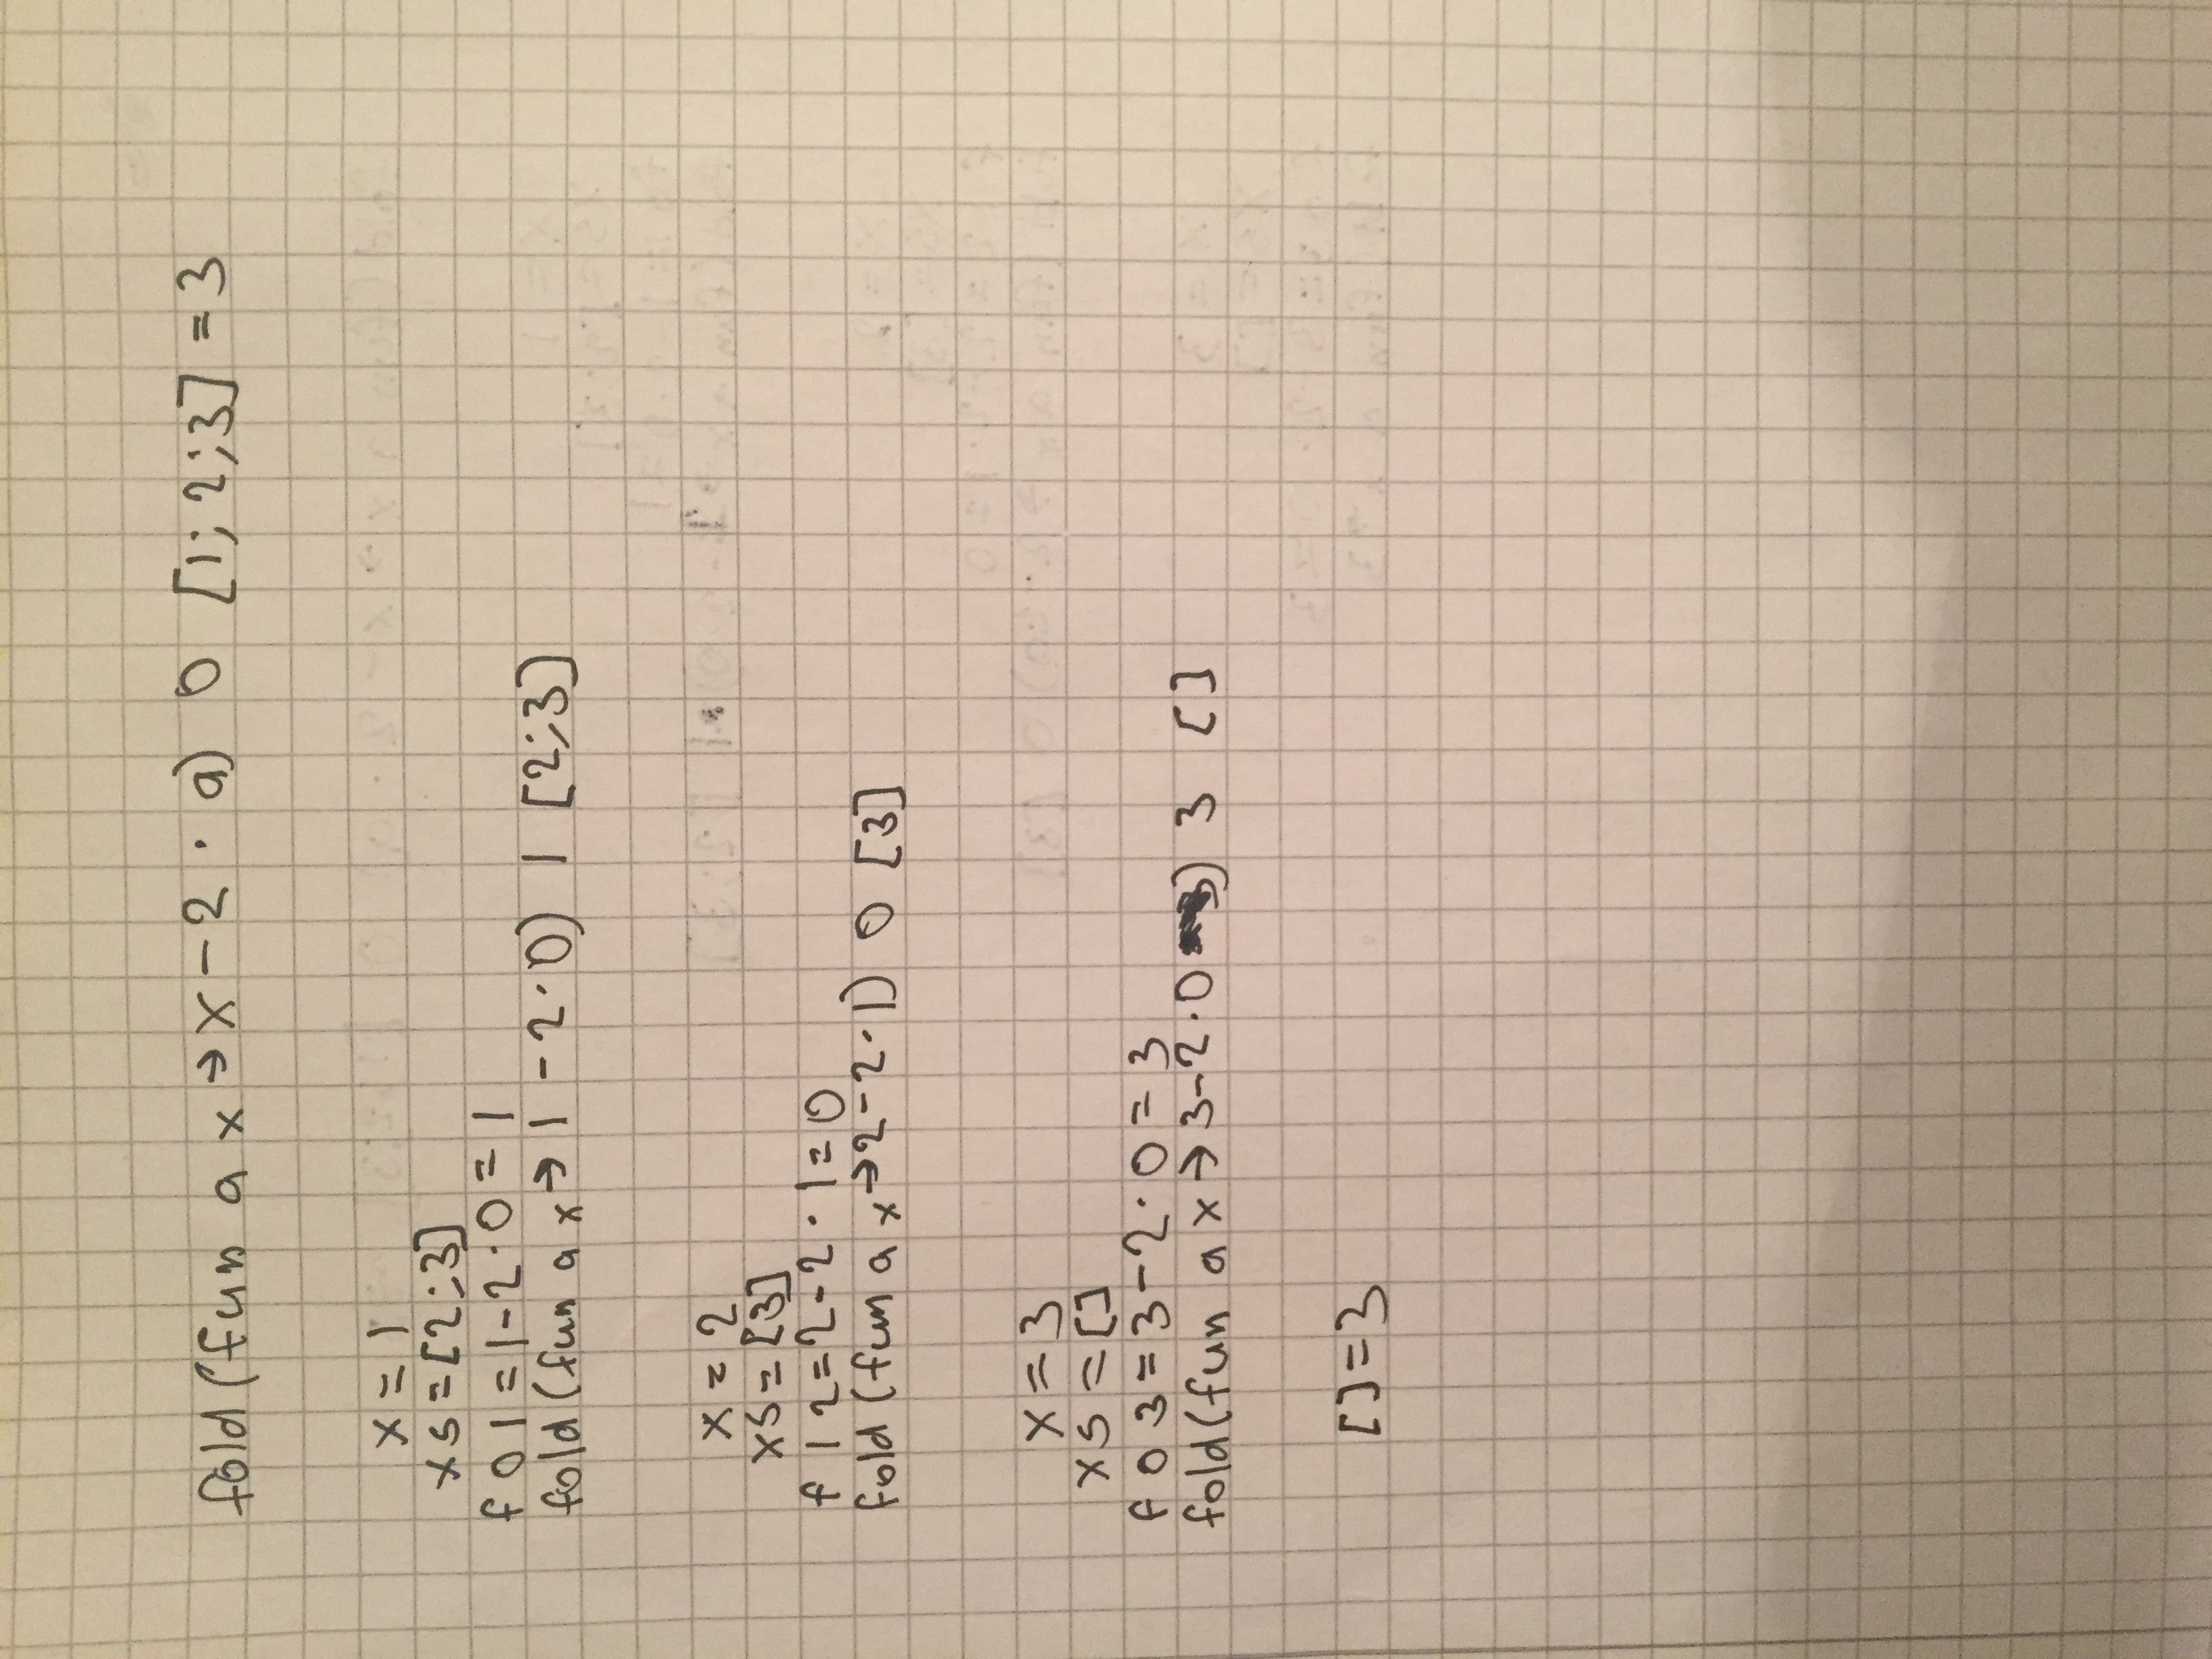 fold (fun a x → x - 2 · a) 0 [1; 2; 3] = 3
x = 1
xs = [2; 3]
f 0 1 = 1 - 2 · 0 = 1
fold (fun a x → 1 - 2 · 0) 1 [2; 3]
x = 2
xs = [3]
f 1 2 = 2 - 2 · 1 = 0
fold (fun a x → 2 - 2 · 1) 0 [3]
x = 3
xs = []
f 0 3 = 3 - 2 · 0 = 3
fold (fun a x → 3 - 2 · 0) 3 []
[] = 3